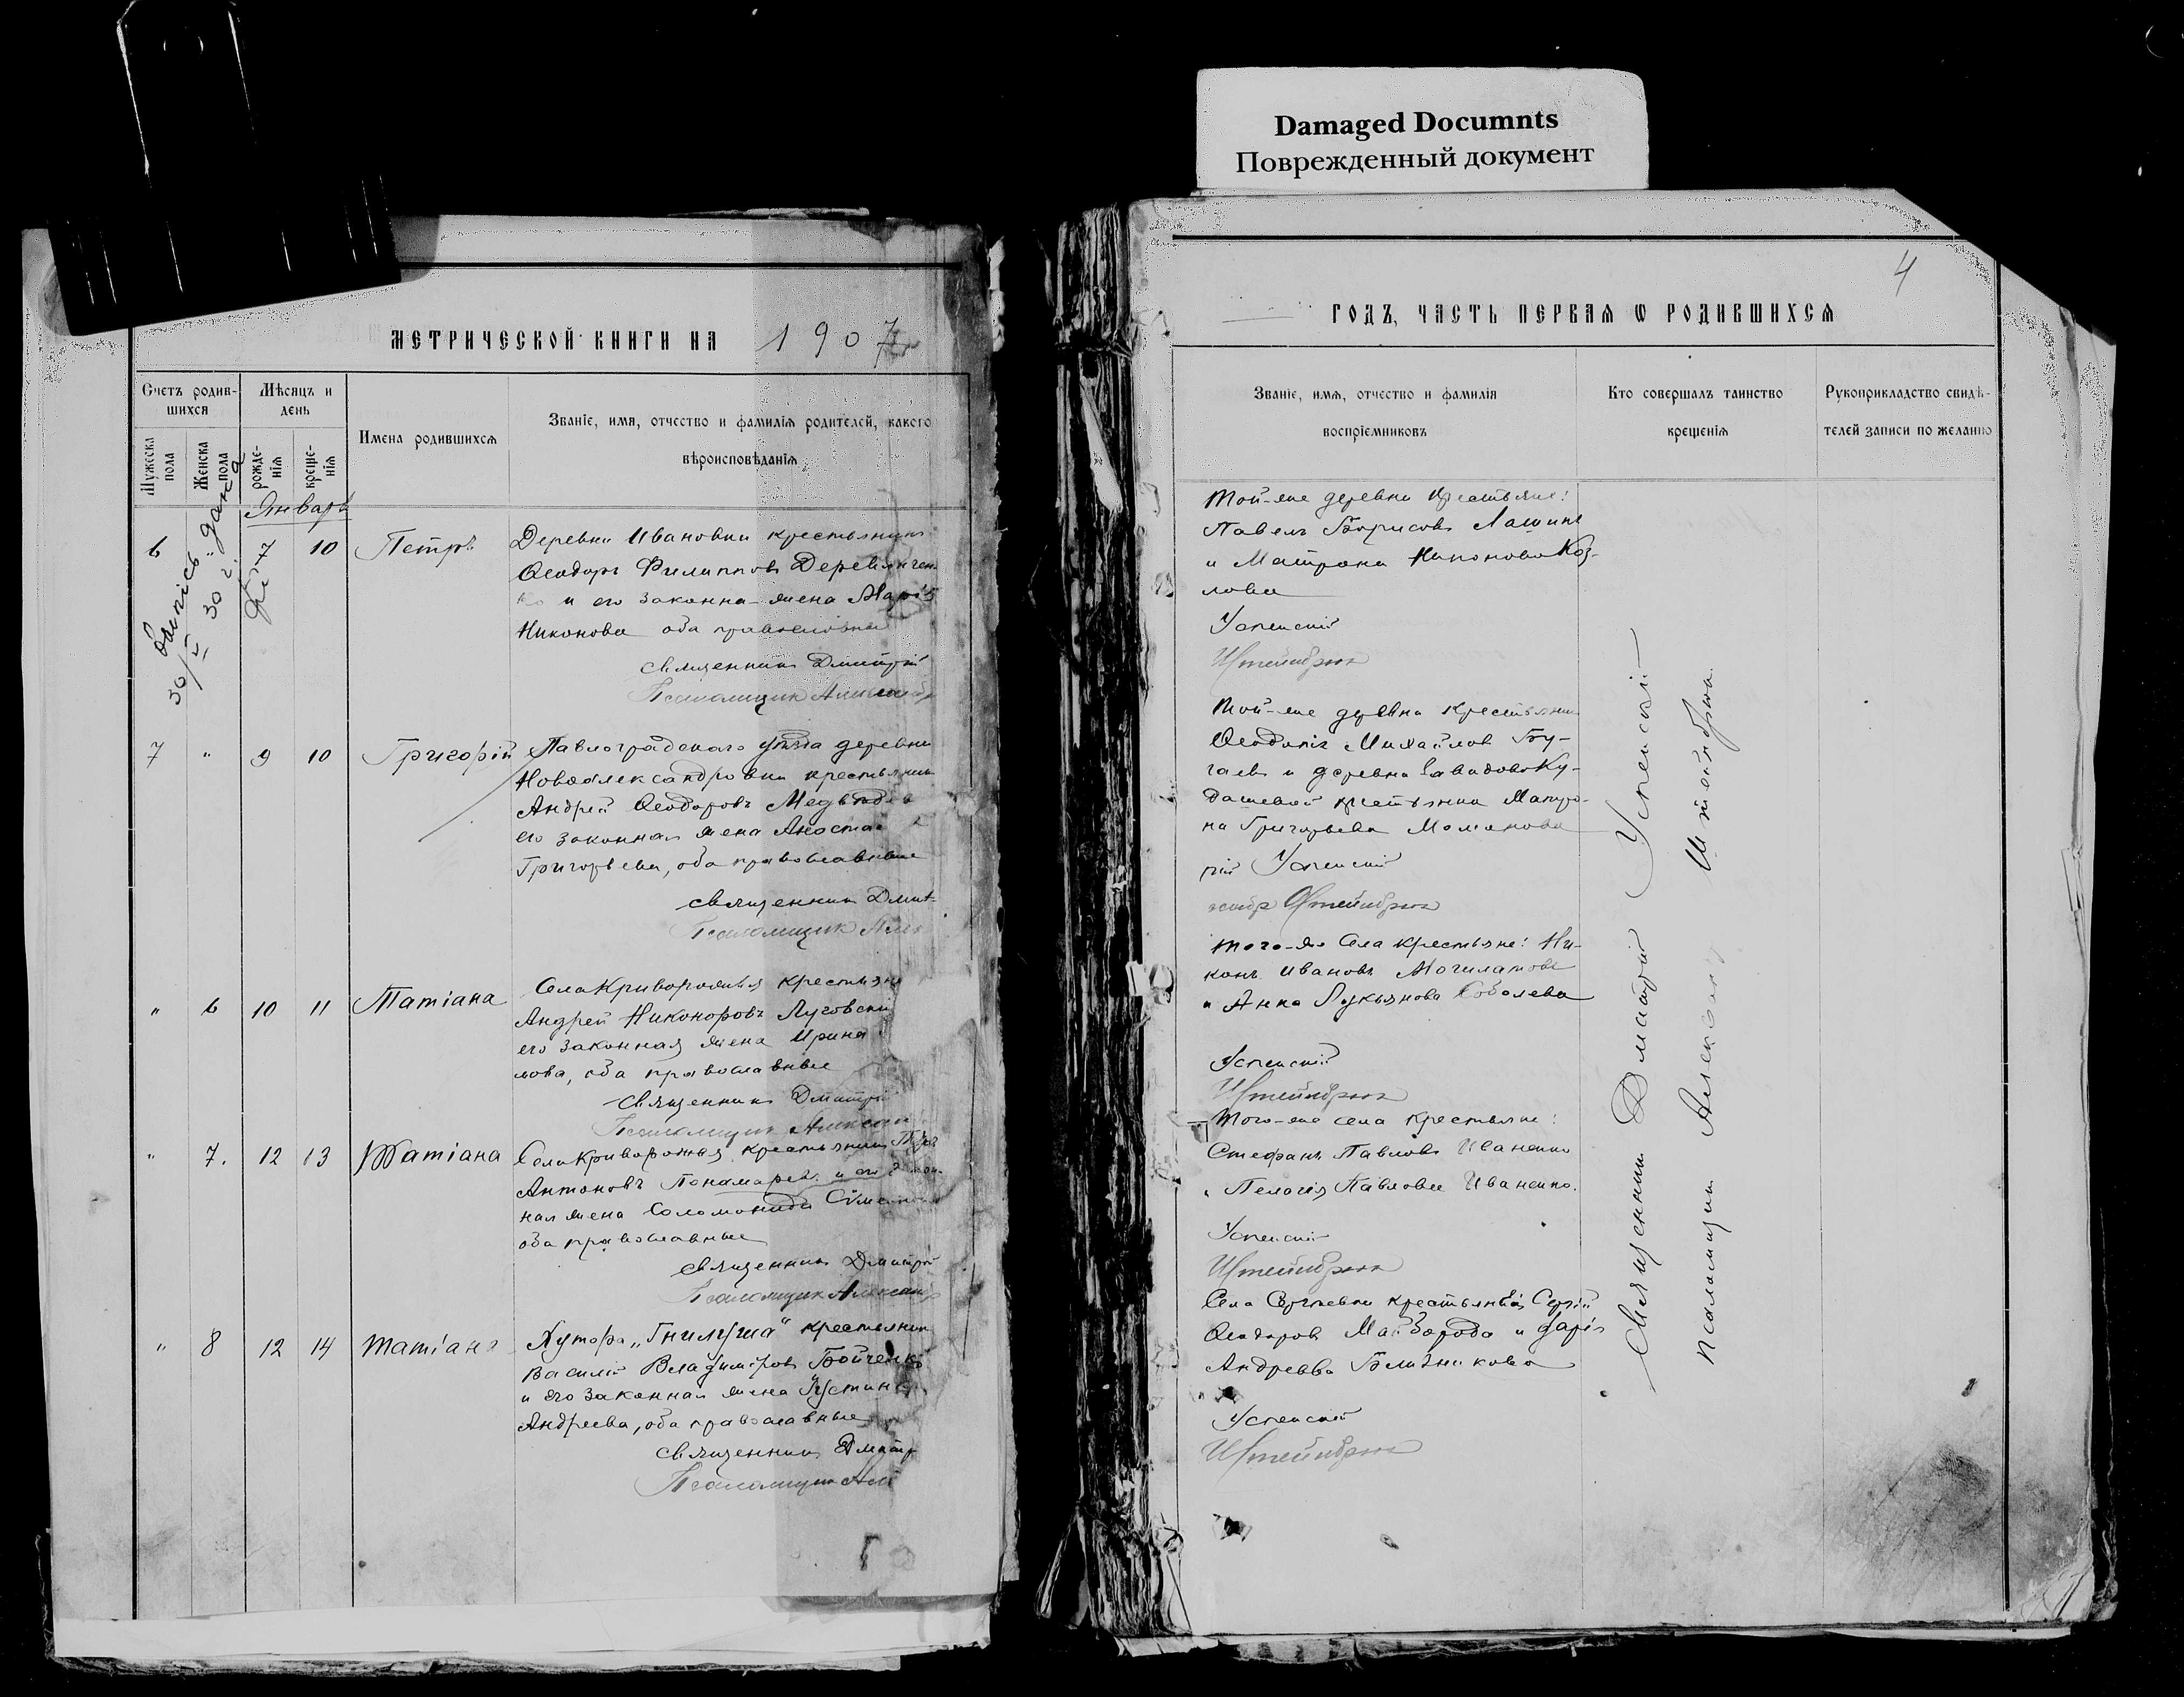 Damaged Documnts
Поврежденный документ
МЕТРИЧЕСКОЙ КНИГИ НА 1907
Счетъ родив-
шихся
Мѣсяцъ и
день
Мужеска
пола
Женска
пола
рожде-
нія
креще-
нія
Имена родившихся
Званіе, имя, отчество и фамилія родителей, какого
вѣроисповѣданія
Январь
6 7 10 Петръ
Деревни Ивановки крестьянинъ
Ѳеодоръ Филипповъ Деревянчен
ко и его законна жена Марія
Никонова оба православны
священникъ Дмитрій
Псаломщик Александр
7 " 9 10 Григорій
Павлоградскаго уѣзда деревни
Новоалександровки крестьянин
Андрей Ѳеодоровъ Медвѣдев
его законная жена Анаста
Григорьева, оба православные
священник Дмит
Псаломщик Але
" 6 10 11 Татіана
Села Криворожья крестьян
Андрей Никоноровъ Луговски
его законная жена Ирина
лова, оба православные
священникъ Дмитрій
Псаломщик Алексан
" 7. 12 13 Татіана
Села Криворожья крестьянинъ
Антоновъ Понамарев и его закон
ная жена Соломонида
оба православные
священникъ Дмитрій
Псаломщик Александр
" 8 12 14 Татіана
Хутора „Гнилуша" крестьянин
Василій Владиміровъ Бойченко
и его законная жена Устина
Андреева, оба православные
священникъ Дмитр
Псаломщик Але
4
ГОДЪ, ЧАСТЬ ПЕРВАЯ Ѡ РОДИВШИХСЯ
Званіе, имя, отчество и фамилія
воспріемниковъ
Кто совершалъ таинство
крещенія
Рукоприкладство свидѣ-
телей записи по желанію
Той-же деревни крестьяне:
Павелъ Борисовъ Лашинъ
и Матрона Никонова Коз-
лова
Успенскій
Штейнбрюк
Той-же деревни крестьянин
Михайлов Бу-
гаевъ и деревни Ку-
дашевой крестьянка Матро-
на Григорьева Моманова
рій Успенскій
сандр Штейнбрюк
Того-же Села крестьяне: Ни-
конъ Ивановъ
и Анна Лукьянова Соболева
Успенскій
Штейнбрюк
Того-же села крестьяне:
Стефанъ Павловъ Иваненко
и Пелагія Павлова Иваненко.
Успенскій
Штейнбрюк
Села Сергѣевки Сергѣй
Ѳеодоров Майборода и Дарія
Андреева Близнякова
Успенскій
Штейнбрюк
Священникъ Дмитрій Успенскій
Псаломщикъ Александр Штейнбрюк